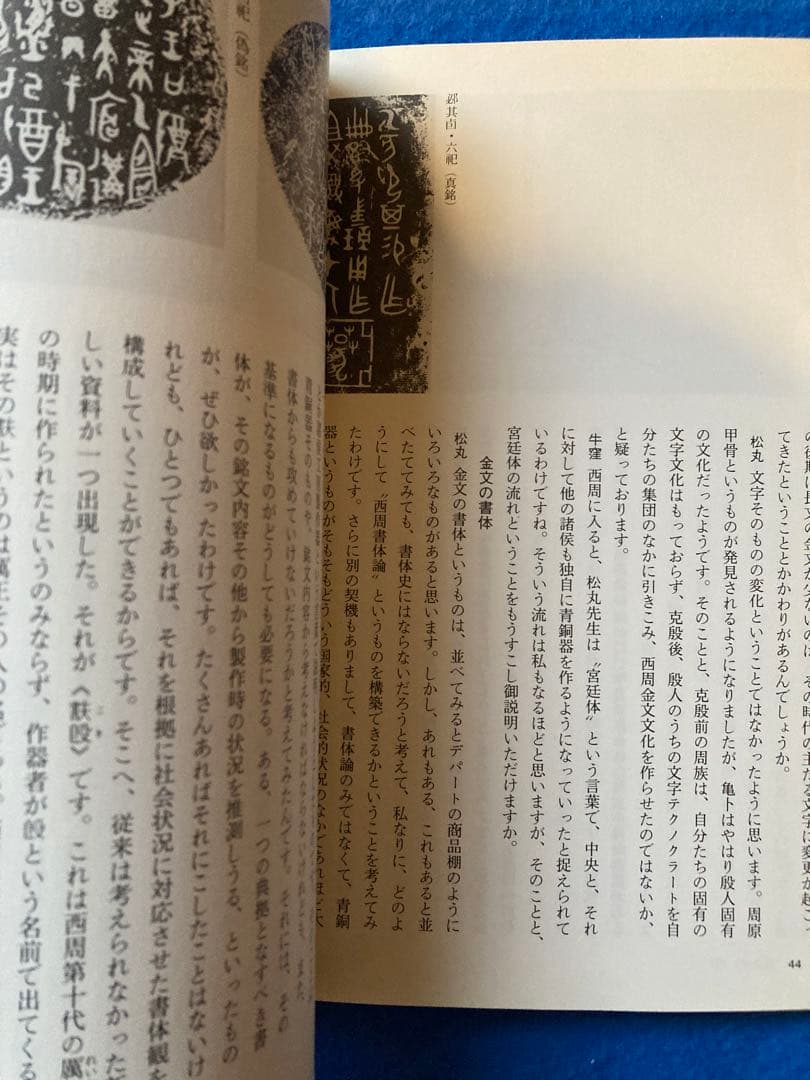 の後期に長文の金文が少ないのは、その時代の主たる文字に変更が起こっ
てきたということとかかわりがあるんでしょうか。
松丸 文字そのものの変化ということではなかったように思います。周原
甲骨というものが発見されるようになりましたが、亀卜はやはり殷人固有
の文化だったようです。そのことと、克殷前の周族は、自分たちの固有の
文字文化はもっておらず、克殷後、殷人のうちの文字テクノクラートを自
分たちの集団のなかに引きこみ、西周金文文化を作らせたのではないか、
と疑っております。
牛窪 西周に入ると、松丸先生は〝宮廷体〟という言葉で、中央と、それ
に対して他の諸侯も独自に青銅器を作るようになっていったと捉えられて
いるわけですね。そういう流れは私もなるほどと思いますが、そのことと、
宮廷体の流れということをもうすこし御説明いただけますか。
金文の書体
松丸 金文の書体というものは、並べてみるとデパートの商品棚のように
いろいろなものがあると思います。しかし、あれもある、これもあると並
べたててみても、書体史にはならないだろうと考えて、私なりに、どのよ
うにして〝西周書体論〟というものを構築できるかということを考えてみ
たわけです。さらに別の契機もありまして、書体論のみではなくて、青銅
器というものがそもそもどういう国家的、社会的状況のなかであれほど大
𠨘其卣・六祀（真銘）
44
祀（偽銘）
青銅器そのものや、銘文内容から考えなければならないけれども、また、
書体からも攻めていけないだろうかと考えてみたんです。それには、その
基準になるものがどうしても必要になる。ある、一つの典拠となすべき書
体が、その銘文内容その他から製作時の状況を推測しうる、といったもの
が、ぜひ欲しかったわけです。たくさんあればそれにこしたことはないけ
れども、ひとつでもあれば、それを根拠に社会状況に対応させた書体観を
構成していくことができるからです。そこへ、従来は考えられなかった
しい資料が一つ出現した。それが《㝬𣪘》です。これは西周第十代の厲
の時期に作られたというのみならず、作器者が㝬という名前で出てくる
実はその㝬というのは厲王その人の名